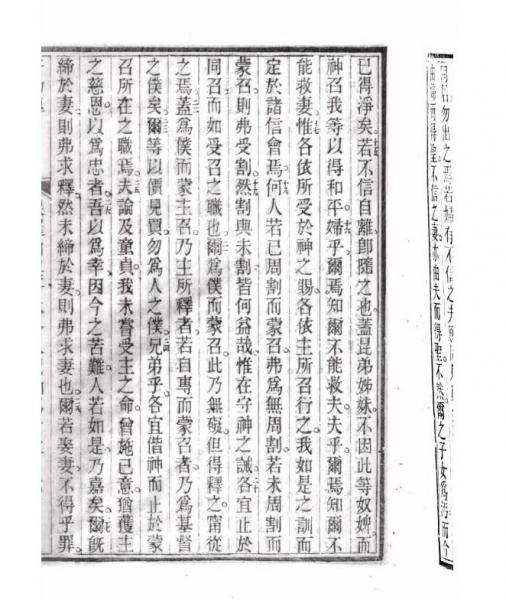 同居勿出之焉若婦有不信之夫願同
由婦而得聖不信之妻亦由夫而得聖不然爾之子女為污而今
已得淨矣若不信自離卽隨之也蓋昆弟姊妹不因此等奴婢而
神召我等以得和平婦乎爾焉知爾不能救夫夫乎爾焉知爾不
能救妻惟各依所受於神之賜各依主所召行之我如是之訓而
定於諸信會焉何人若已周割而蒙召弗為無周割若未周割而
蒙召則弗受割然割與未割皆何益哉惟在守神之誡各宜止於
同召而如受召之職也爾為僕而蒙召此乃無礙但得釋之甯從
之焉蓋為僕而蒙主召乃主所釋者若自專而蒙召者乃為基督
之僕矣爾等以價見買勿為人之僕兄弟乎各宜偕神而止於蒙
召所在之職焉夫論及童貞我未嘗受主之命曾施已意猶獲主
之慈恩以為忠者吾以為幸因今之苦難人若如是乃嘉矣爾旣
締於妻則弗求釋然未締於妻則弗求妻也爾若娶妻不得乎罪